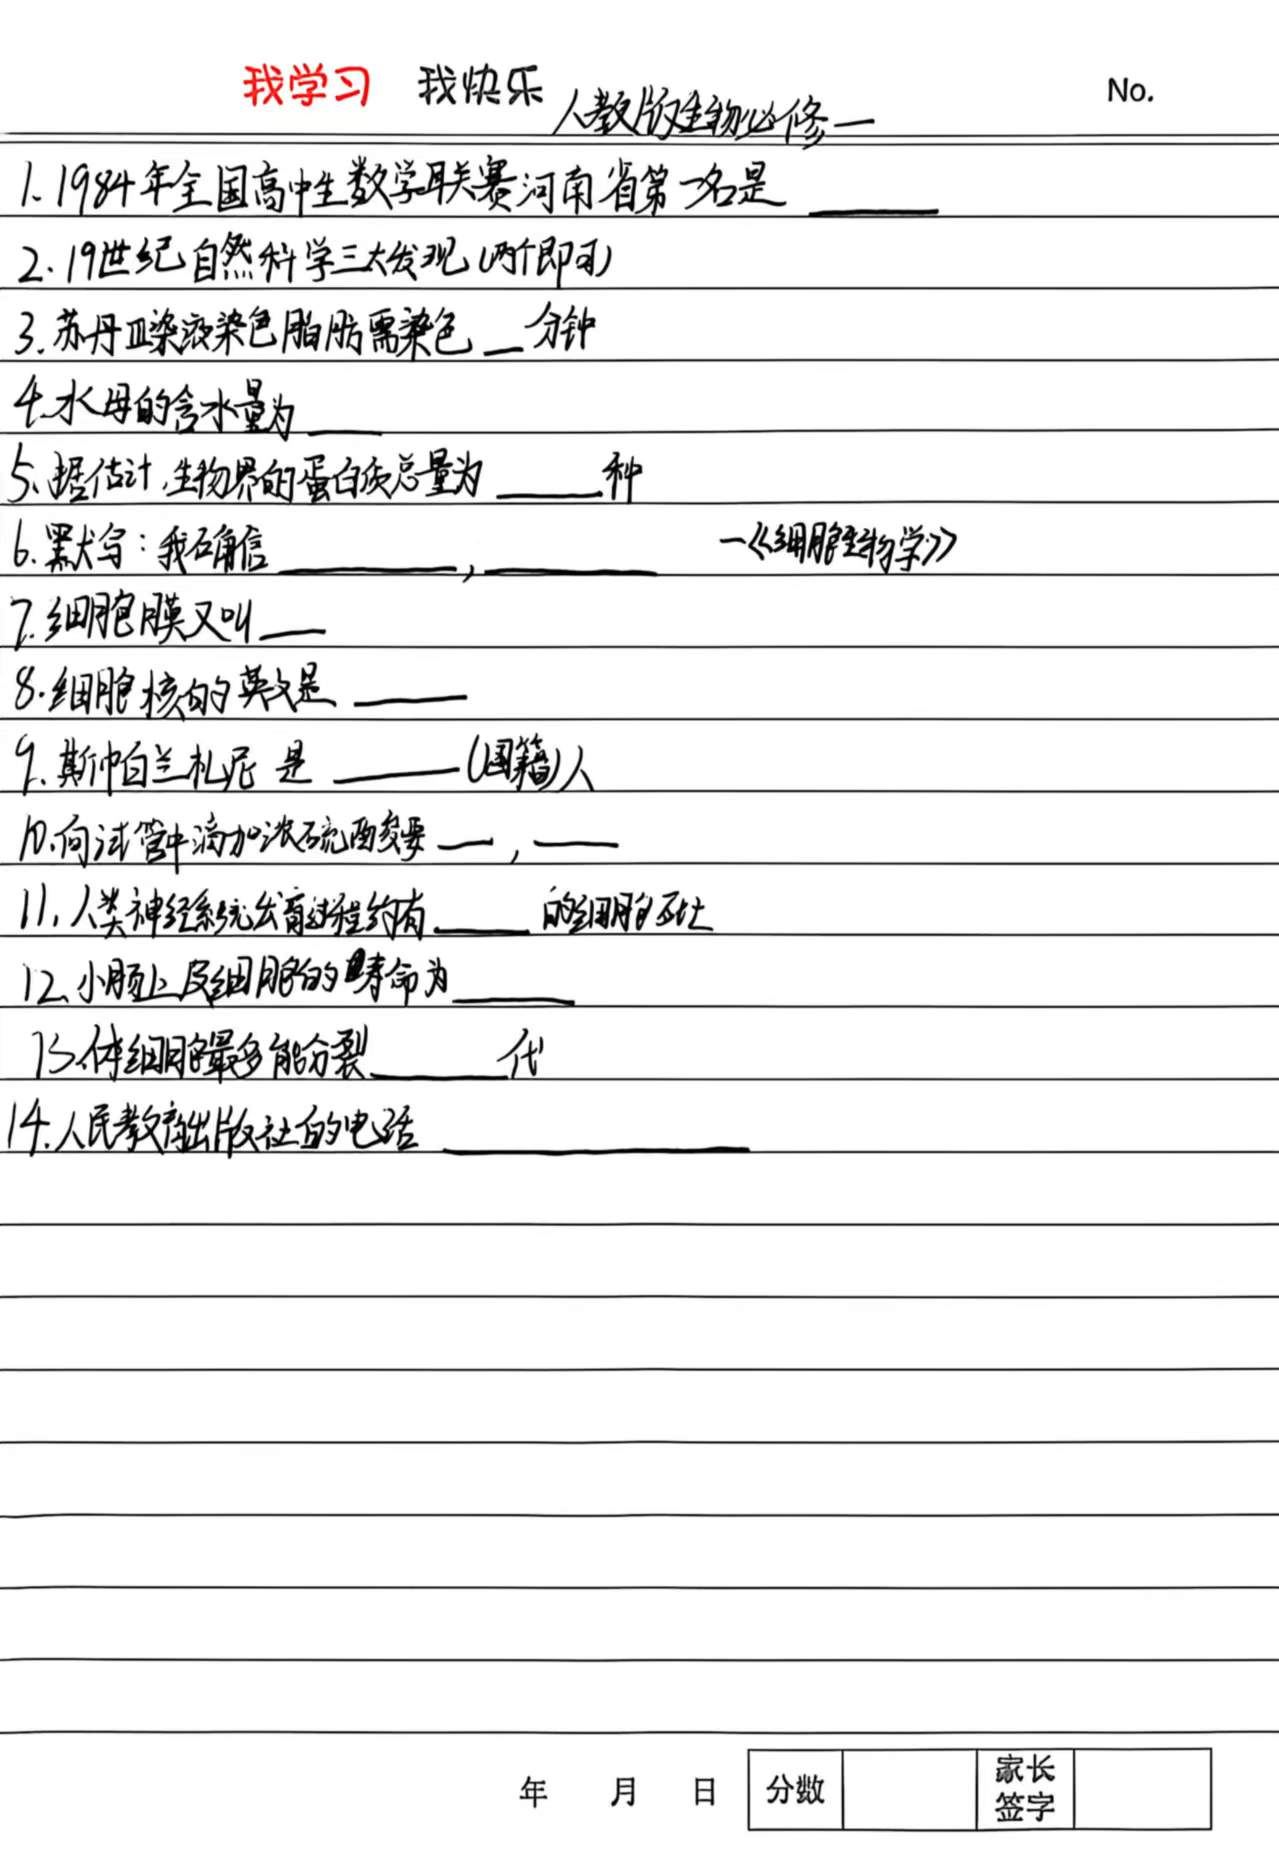 我学习 我快乐 人教版生物必修一 No.
1.1984年全国高中生数学联赛河南省第一名是____
2.19世纪自然科学三大发现(两个即可)
3.苏丹Ⅲ染液染色脂肪需染色__分钟
4.水母的含水量为___
5.据估计,生物界的蛋白质总量为____种
6.默写:我确信______,______ —《细胞生物学》
7.细胞膜又叫___
8.细胞核的英文是____
9.斯帕兰札尼是____(国籍)人
10.向试管中滴加浓硫酸要__,___
11.人类神经系统发育过程约有____的细胞死亡
12.小肠上皮细胞的寿命为____
13.体细胞最多能分裂____代
14.人民教育出版社的电话________
年 月 日 分数 家长签字